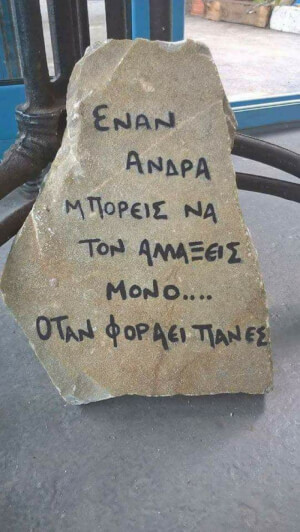 ΕΝΑΝ
ΑΝΔΡΑ
ΜΠΟΡΕΙΣ ΝΑ
ΤΟΝ ΑΛΛΑΞΕΙΣ
ΜΟΝΟ....
ΟΤΑΝ ΦΟΡΑΕΙ ΠΑΝΕΣ